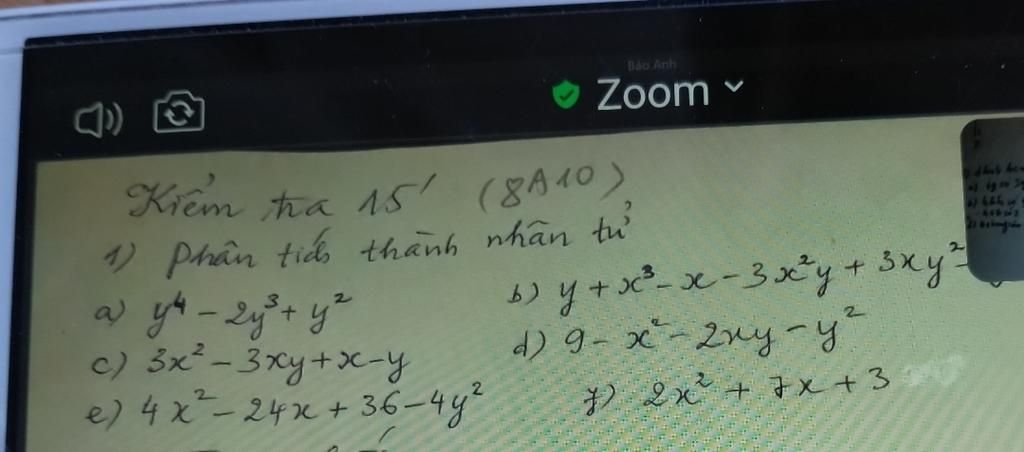 Bảo Anh
Zoom
Kiểm tra 15' (8A10)
1) Phân tích thành nhân tử
a) y⁴ - 2y³ + y²
b) y + x³ - x - 3x²y + 3xy² -
c) 3x² - 3xy + x - y
d) 9 - x² - 2xy - y²
e) 4x² - 24x + 36 - 4y²
f) 2x² + 7x + 3